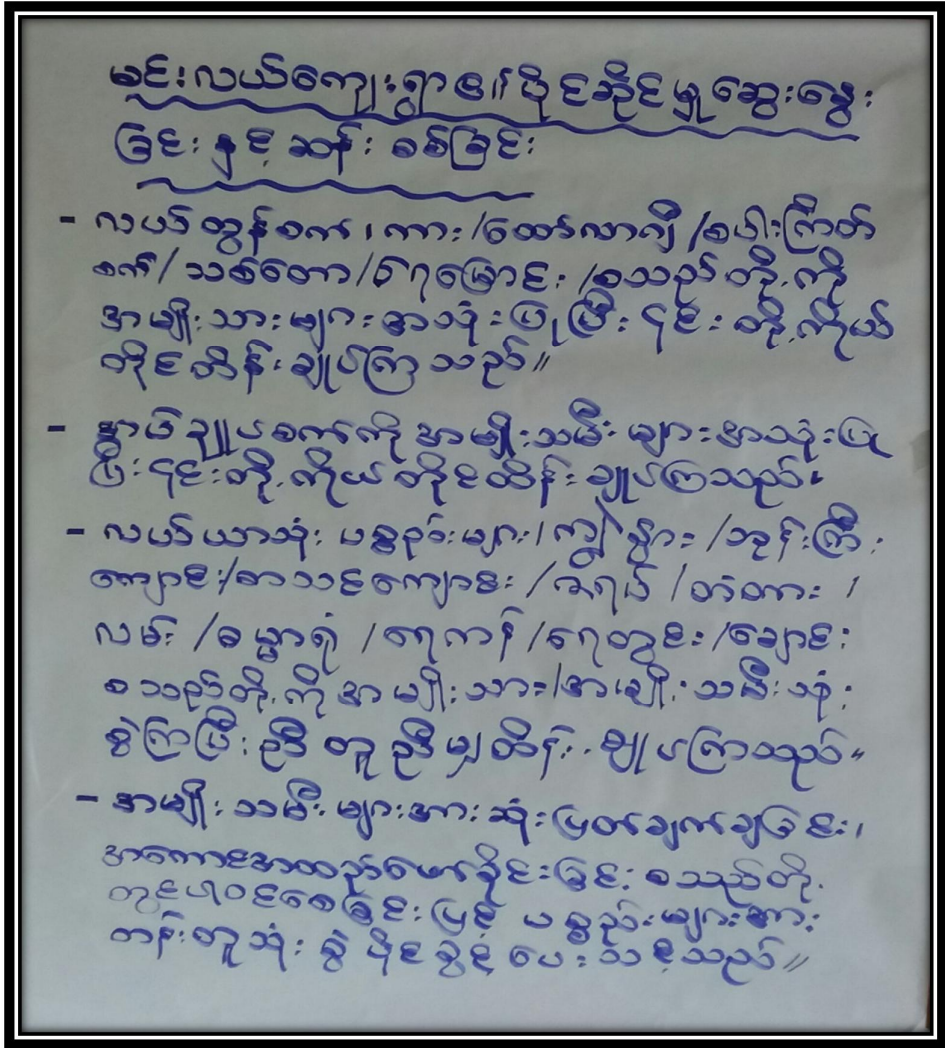 မင်းလယ်ကျေးရွာ၏ ပိုင်ဆိုင်မှုဆွေးနွေး
ခြင်း နှင့် ဆန်းစစ်ခြင်း
- လယ်ထွန်စက် ၊ ကား / ထော်လာဂျီ / စပါးကြိတ်
စက် / သစ်တော / ရေမြောင်း / စသည်တို့ကို
အမျိုးသားများ အသုံးပြုပြီး ၎င်းတို့ကိုယ်
တိုင်ထိန်းချုပ်ကြသည်။
- အပ်ချုပ်စက်ကို အမျိုးသမီးများ အသုံးပြု
ပြီး ၎င်းတို့ကိုယ်တိုင်ထိန်းချုပ်ကြသည်။
- လယ်ယာသုံး ပစ္စည်းများ / ကျွဲနွား / ဘုန်းကြီး
ကျောင်း / စာသင်ကျောင်း / ဇရပ် / တံတား /
လမ်း / ဓမ္မာရုံ / ရေကန် / ရေတွင်း / ချောင်း
စသည်တို့ကို အမျိုးသား / အမျိုးသမီး သုံး
စွဲကြပြီး ညီတူညီမျှ ထိန်းချုပ်ကြသည်။
- အမျိုးသမီးများအား ဆုံးဖြတ်ချက်ချခြင်း၊
အကောင်အထည်ဖော်ခိုင်းခြင်း စသည်တို့
တွင်ပါဝင်စေခြင်းဖြင့် ပစ္စည်းများအား
တန်းတူသုံးစွဲပိုင်ခွင့် ပေးသင့်သည်။